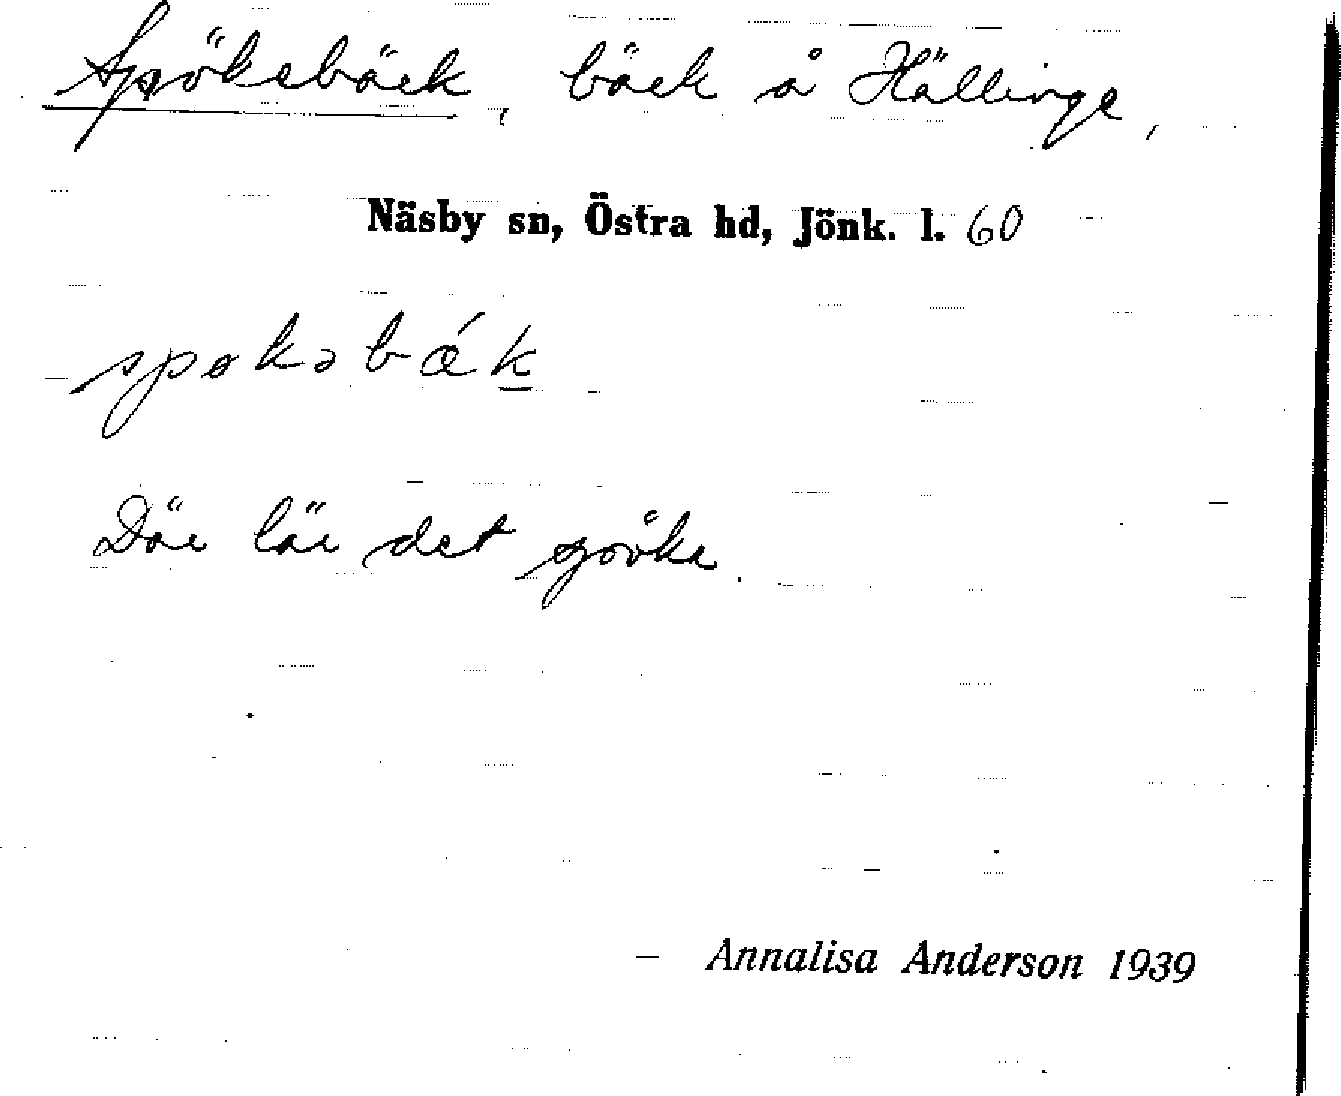 Spökebäck, bäck å Hällinge,
Näsby sn, Östra hd, Jönk. l. 60
spøkəbǽk̲
Där lär det spöka.
Annalisa Anderson 1939